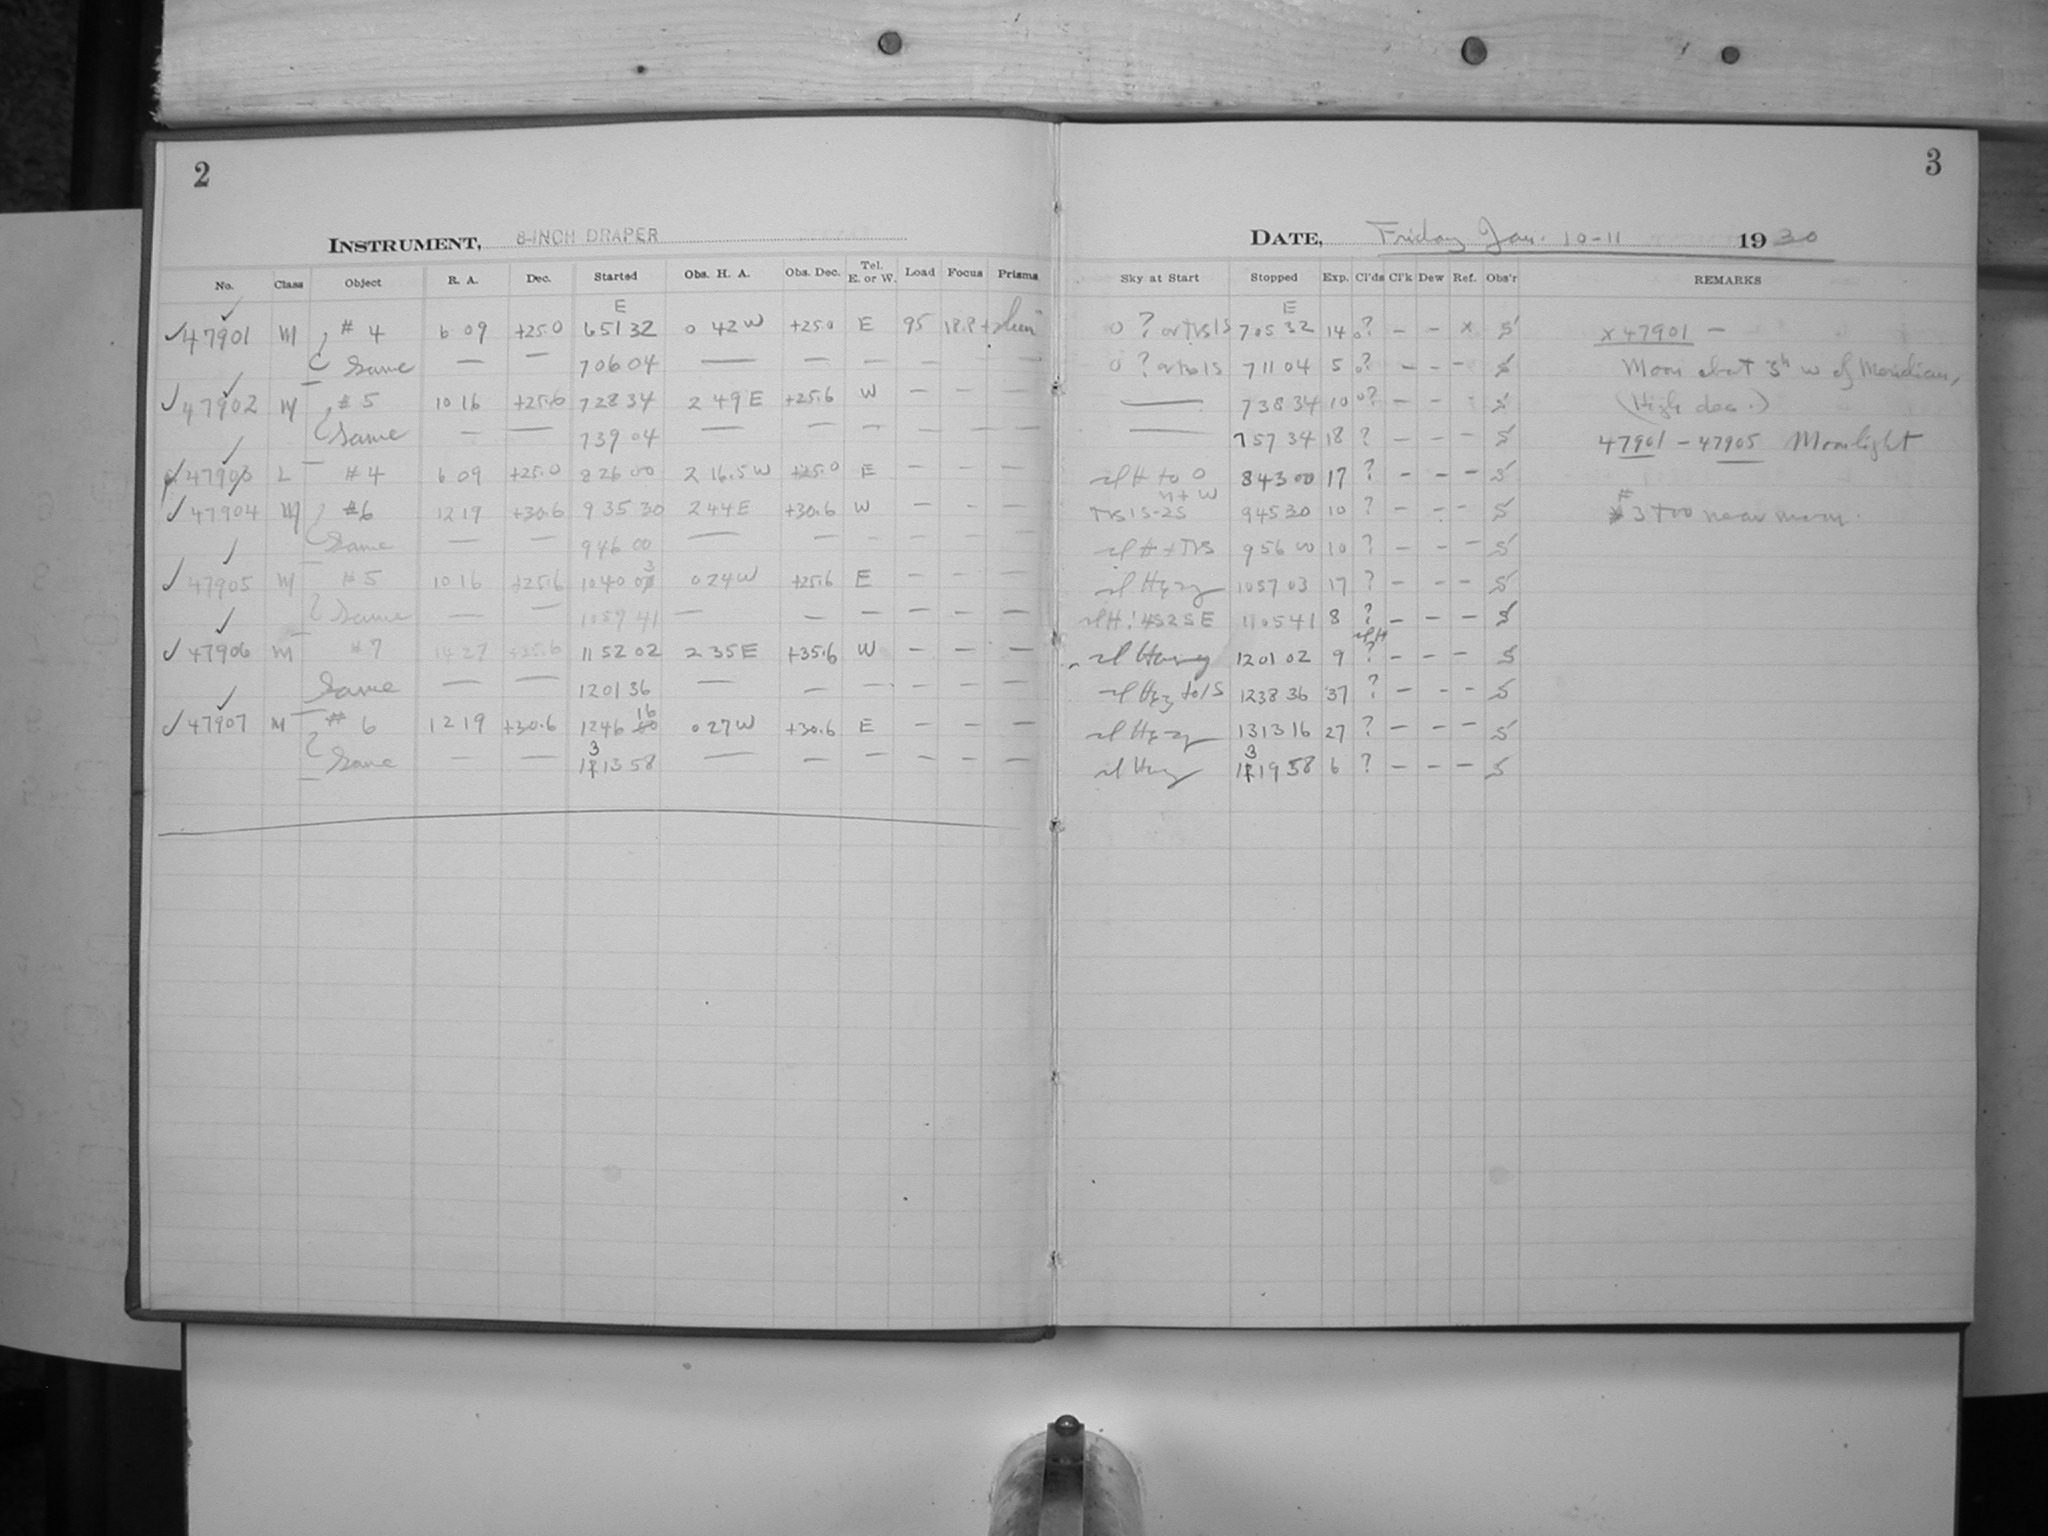 2
INSTRUMENT, 8-INCH DRAPER
No. Class Object R. A. Dec. Started Obs. H. A. Obs. Dec. Tel. E. or W. Load Focus Prisms
E
47901 M #4 6 09 +25.0 6 51 32 0 42 W +25.0 E 95
Same — — 7 06 04 — — — — — —
47902 M #5 10 16 +25.6 7 28 34 2 49 E +25.6 W — — —
Same — — 7 39 04 — — — — — —
47903 L #4 6 09 +25.0 8 26 00 2 16.5 W +25.0 E — — —
47904 M #6 12 19 +30.6 9 35 30 2 44 E +30.6 W — — —
Same — — 9 46 00 — — — — — —
47905 M #5 10 16 +25.6 10 40 03 0 24 W +25.6 E — — —
Same — — 10 57 41 — — — — — —
47906 M #7 14 27 11 52 02 2 35 E +35.6 W — — —
Same — — 12 01 36 — — — — — —
47907 M #6 12 19 +30.6 12 46 16 0 27 W +30.6 E — — —
Same — — 13 13 58 — — — — — —
3
DATE, Friday Jan. 10-11 1930
Sky at Start Stopped Exp. Cl'ds Cl'k Dew Ref. Obs'r REMARKS
E
0 ? or 7 05 32 14 0? — — x S x 47901 —
0 ? or 7 11 04 5 0? — — — S Moon about 3h W of Meridian,
— 7 38 34 10 0? — — S (High dec.)
— 7 57 34 18 ? — — — S 47901 – 47905 Moonlight
to 0 8 43 00 17 ? — — — S
n + W
9 45 30 10 ? — — — S #3 too near moon.
9 56 00 10 ? — — — S
10 57 03 17 ? — — — S
11 05 41 8 ? — — — S
12 01 02 9 ? — — — S
12 38 36 37 ? — — — S
13 13 16 27 ? — — — S
13 19 58 6 ? — — — S